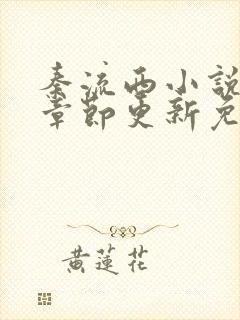 秦流西小說
章節更新免
黃蓮花